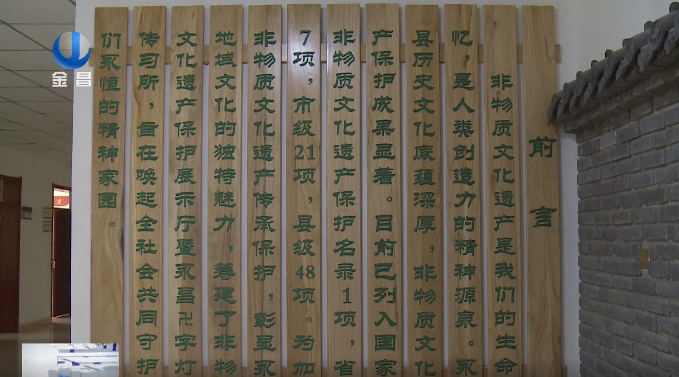 金昌
前言
非物质文化遗产是我们的生命
忆，是人类创造力的精神源泉。永
县历史文化底蕴深厚，非物质文化
产保护成果显著。目前已列入国家
非物质文化遗产保护名录1项，省
7项，市级21项，县级48项。为加
非物质文化遗产传承保护，彰显永
地域文化的独特魅力，筹建了非物
文化遗产保护展示厅暨永昌卍字灯
传习所，旨在唤起全社会共同守护
们永恒的精神家园。